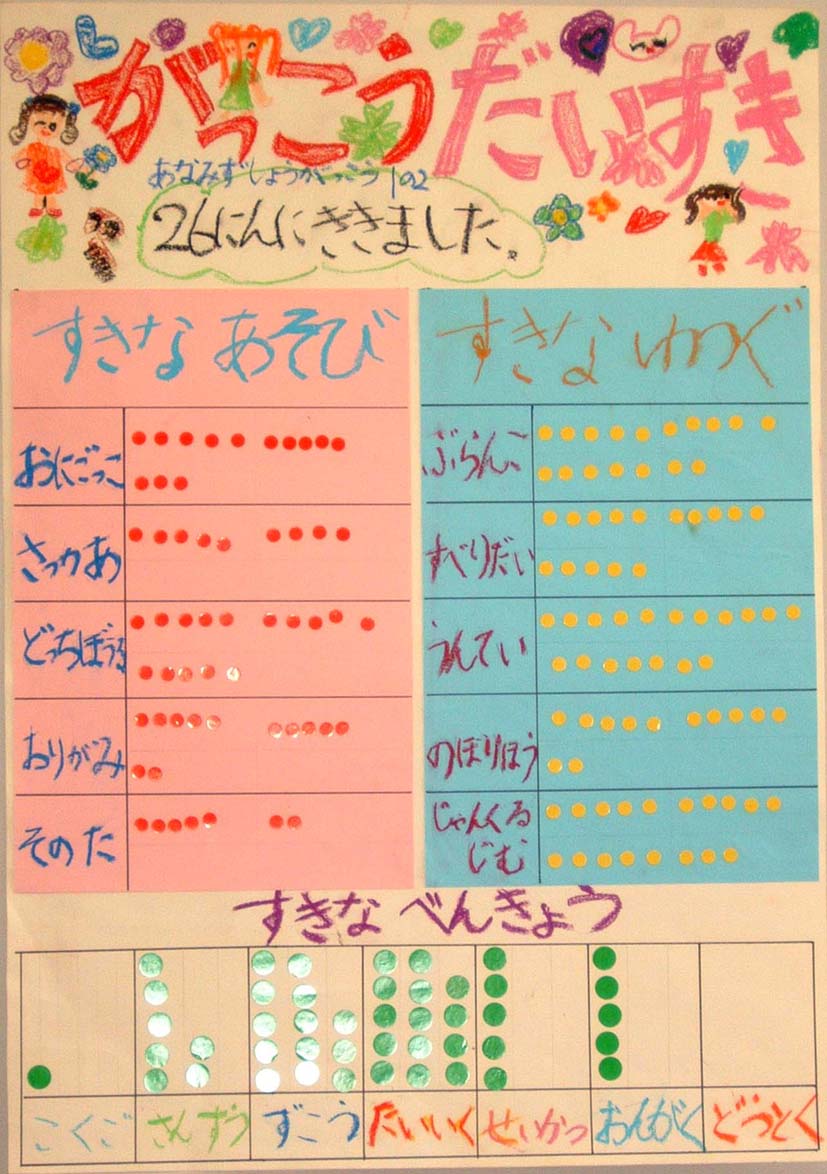 がっこう だいすき
あなみずしょうがっこう 1の2
26にんに ききました。
すきな あそび
おにごっこ
さっかあ
どっちぼうる
おりがみ
そのた
すきな ゆうぐ
ぶらんこ
すべりだい
うんてい
のぼりぼう
じゃんぐる
じむ
すきな べんきょう
こくご
さんすう
ずこう
たいいく
せいかつ
おんがく
どうとく